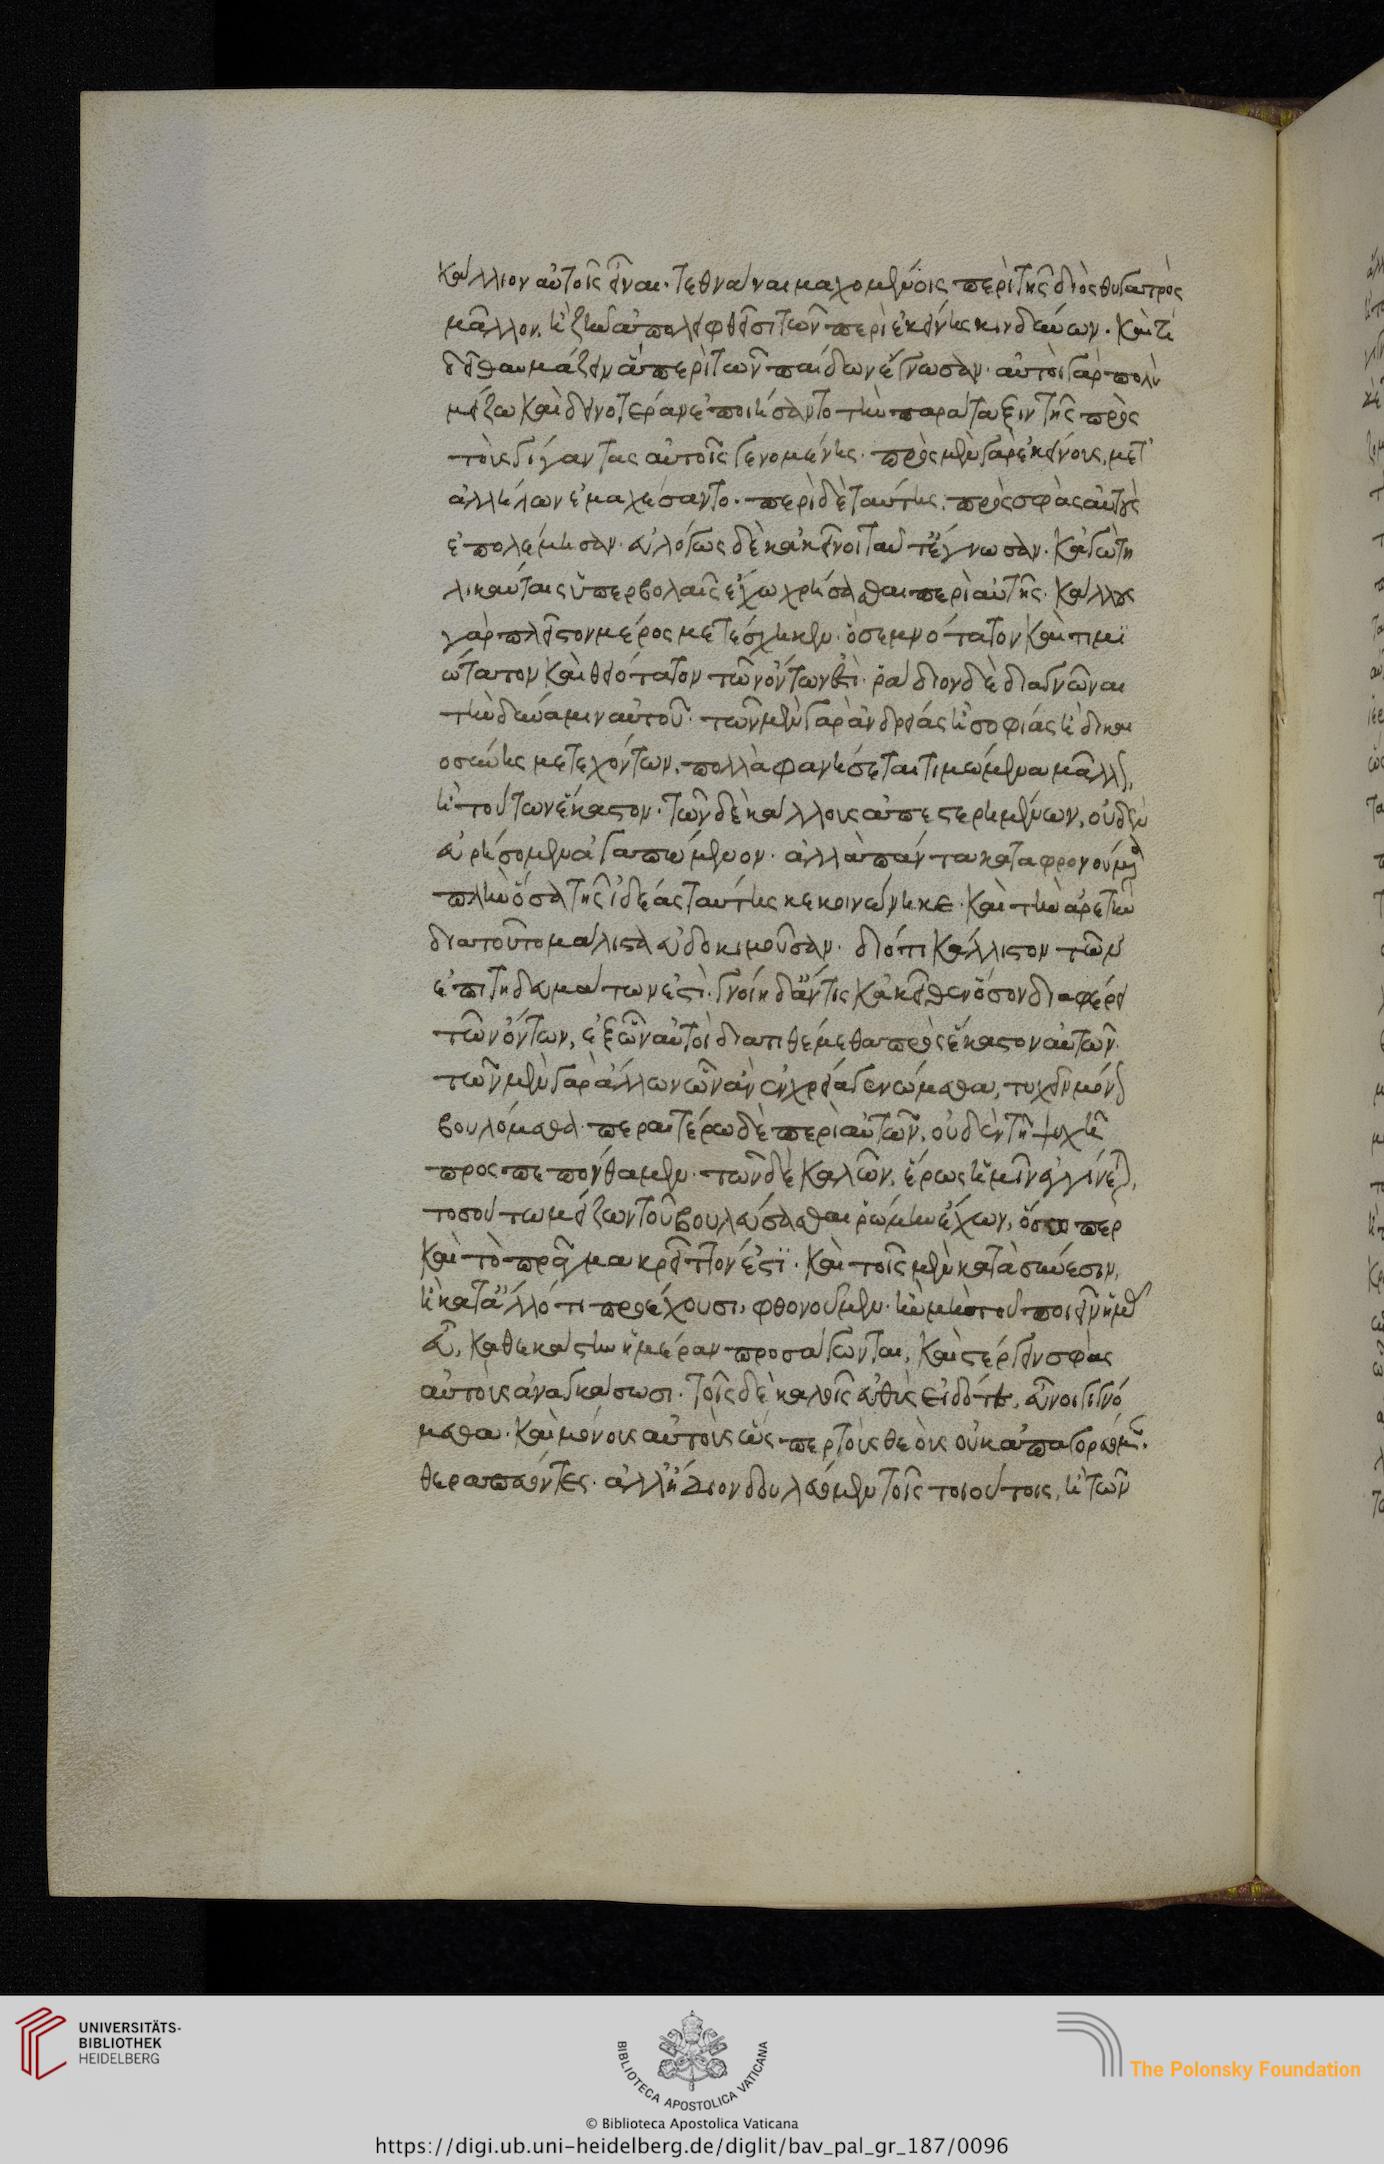 κάλλιον αὐτοῖς εἶναι. τεθνάναι μαχομένοις περὶ τῆς διὸς θυγατρὸς
μᾶλλον, ἢ ζῆν ἀπολειφθεῖσι τῶν περὶ ἐκείνης κινδύνων. καὶ τί
δεῖ θαυμάζειν ἃ περὶ τῶν παίδων ἔγνωσαν. αὐτοὶ γὰρ πολὺ
μείζω καὶ δεινοτέραν ἐποιήσαντο τὴν παράταξιν τῆς πρὸς
τοὺς γίγαντας αὐτοῖς γενομένης. πρὸς μὲν γὰρ ἐκείνους, μετ'
ἀλλήλων ἐμαχέσαντο. περὶ δὲ ταύτης, πρὸς σφᾶς αὐτοὺς
ἐπολέμησαν. εὐλόγως δὲ κἀκεῖνοι ταῦτ' ἔγνωσαν. κἀγὼ τη
λικαύταις ὑπερβολαῖς ἔχω χρήσασθαι περὶ αὐτῆς. κάλλους
γὰρ πλεῖστον μέρος μετέσχηκεν. ὃ σεμνότατον καὶ τιμι
ώτατον καὶ θειότατον τῶν ὄντων ἐστὶ. ῥάδιον δὲ διαγνῶναι
τὴν δύναμιν αὐτοῦ. τῶν μὲν γὰρ ἀνδρείας ἢ σοφίας ἢ δικαι
οσύνης μετεχόντων, πολλὰ φανήσεται τιμώμενα μᾶλλον,
ἢ τούτων ἕκαστον. τῶν δὲ κάλλους ἀπεστερημένων, οὐδὲν
εὑρήσομεν ἀγαπώμενον. ἀλλὰ πάντα καταφρονούμενα
πλὴν ὅσα τῆς ἰδέας ταύτης κεκοινώνηκε. καὶ τὴν ἀρετὴν
διατοῦτο μάλιστα εὐδοκιμοῦσαν. διότι κάλλιστον τῶν
ἐπιτηδευμάτων ἐστί. γνοίη δ' ἄν τις κἀκεῖθεν ὅσον διαφέρει
τῶν ὄντων, ἐξ ὧν αὐτοὶ διατιθέμεθα πρὸς ἕκαστον αὐτῶν.
τῶν μὲν γὰρ ἄλλων ὧν ἂν ἐν χρείᾳ γενώμεθα, τυχεῖν μόνον
βουλόμεθα. περαιτέρω δὲ περὶ αὐτῶν, οὐδὲν τῇ ψυχῇ
προσπεπόνθαμεν. τῶν δὲ καλῶν, ἔρως ἡμῖν ἐγγίνεται,
τοσούτῳ μείζω τοῦ βουλεύσασθαι ῥώμην ἔχων, ὅσῳ περ
καὶ τὸ πρᾶγμα κρεῖττόν ἐστι. καὶ τοῖς μὲν κατὰ σύνεσιν,
ἢ κατ' ἄλλό τι προέχουσι, φθονοῦμεν. ἢν μὴ τοῦ ποιεῖν ἡμᾶς
εὖ, καθ' ἑκάστην ἡμέραν προσάγωνται, καὶ στέργειν σφᾶς
αὐτοὺς ἀναγκάσωσι. τοῖς δὲ καλοῖς εὐθὺς εἰδότες, εὖνοι γιγνό
μεθα. καὶ μόνους αὐτοὺς ὥσπερ τοὺς θεοὺς οὐκ ἀπαγορεύομεν.
θεραπεύοντες. ἀλλ' ἥδιον δουλεύομεν τοῖς τοιούτοις, ἢ τῶν
UNIVERSITÄTS-
BIBLIOTHEK
HEIDELBERG
BIBLIOTECA APOSTOLICA VATICANA
The Polonsky Foundation
© Biblioteca Apostolica Vaticana
https://digi.ub.uni-heidelberg.de/diglit/bav_pal_gr_187/0096